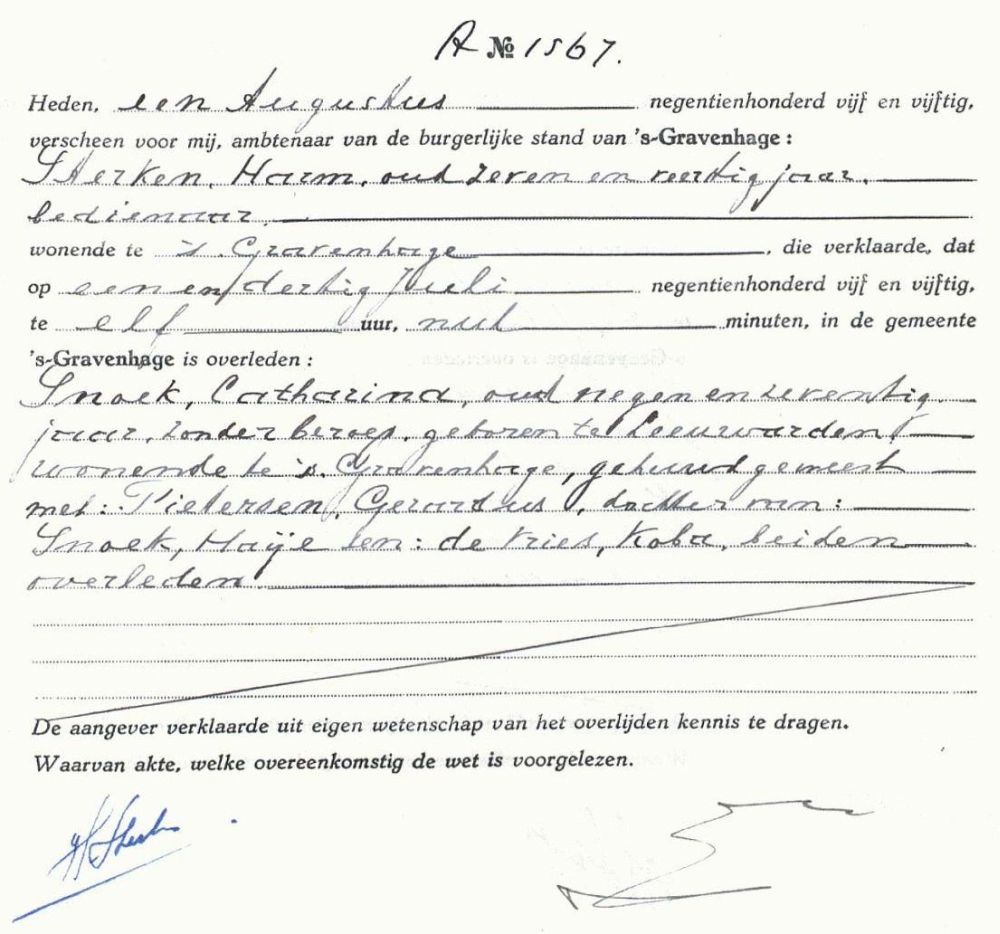 A № 1567.
Heden, een Augustus negentienhonderd vijf en vijftig,
verscheen voor mij, ambtenaar van de burgerlijke stand van 's-Gravenhage :
Sterken, Harm, oud zeven en veertig jaar,
bedienaar,
wonende te 's Gravenhage, die verklaarde, dat
op een en dertig Juli negentienhonderd vijf en vijftig,
te elf uur, nul minuten, in de gemeente
's-Gravenhage is overleden :
Snoek, Catharina, oud negen en zeventig
jaar, zonder beroep, geboren te Leeuwarden,
wonende te 's Gravenhage, gehuwd geweest
met: Pietersen, Gerardus, dochter van:
Snoek, Haije en: de Vries, Koba, beiden
overleden
De aangever verklaarde uit eigen wetenschap van het overlijden kennis te dragen.
Waarvan akte, welke overeenkomstig de wet is voorgelezen.